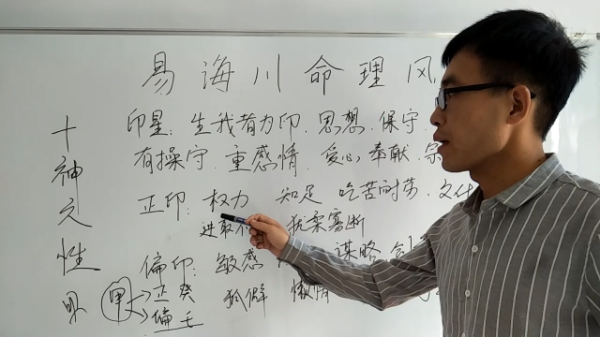 易海川命理风
十神之性
印星：生我者为印．思想．保守．
有操守．重感情．爱心．奉献．宗
正印：权力 知足 吃苦耐劳．文化
进取 犹柔寡断
偏印：敏感 谋略 创
孤僻 惰
甲 正癸
偏壬